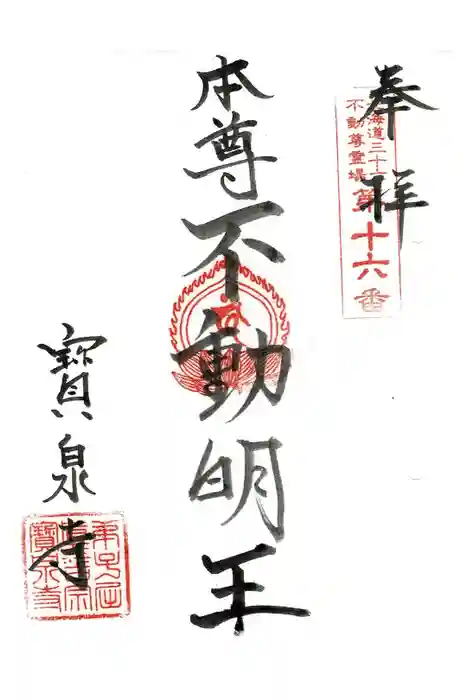 奉拝
北海道三十六
不動尊霊場
第十六番
本尊不動明王
寳泉寺